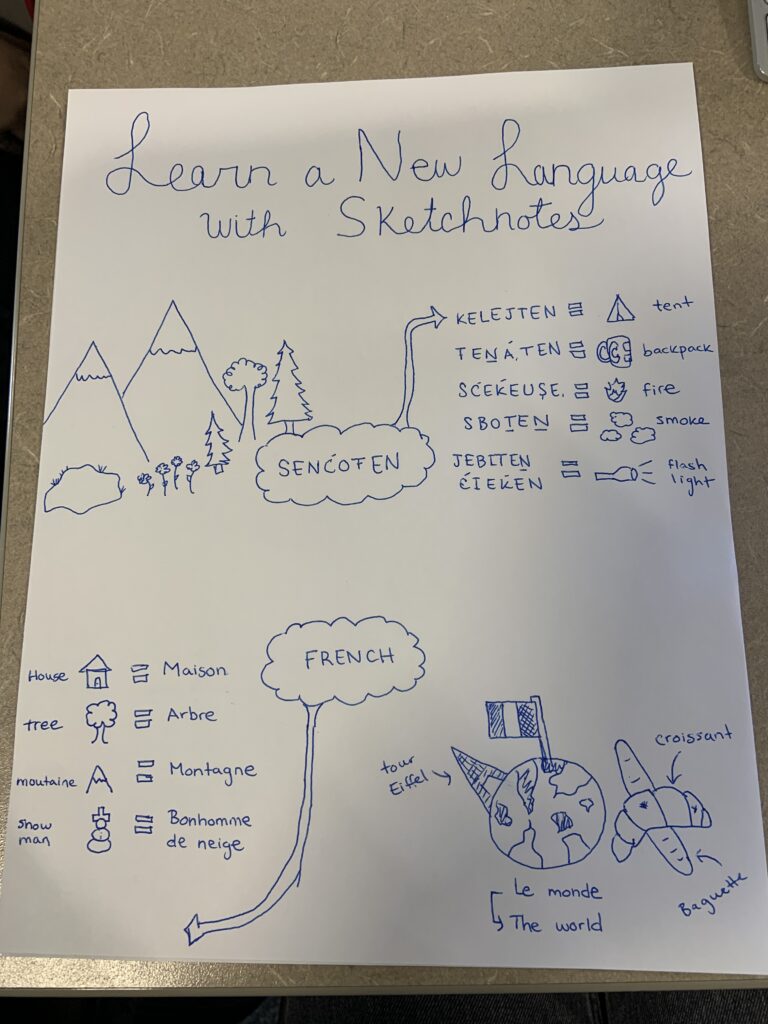 Learn a New Language
with Sketchnotes
KELEJTEN = tent
TEṈÁ,TEN = backpack
SĆEḰEUSE, = fire
SBOṮEṈ = smoke
JEBIṮEṈ
ĆIEḰEN = flash
light
SENĆOŦEN
FRENCH
House = Maison
tree = Arbre
moutaine = Montagne
snow
man = Bonhomme
de neige
tour
Eiffel
croissant
Baguette
Le monde
The world